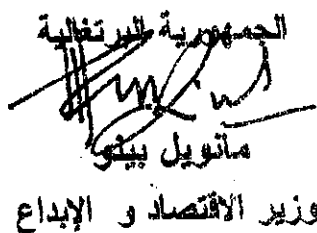 الجمهورية البرتغالية
مانويل بينو
وزير الاقتصاد و الإبداع